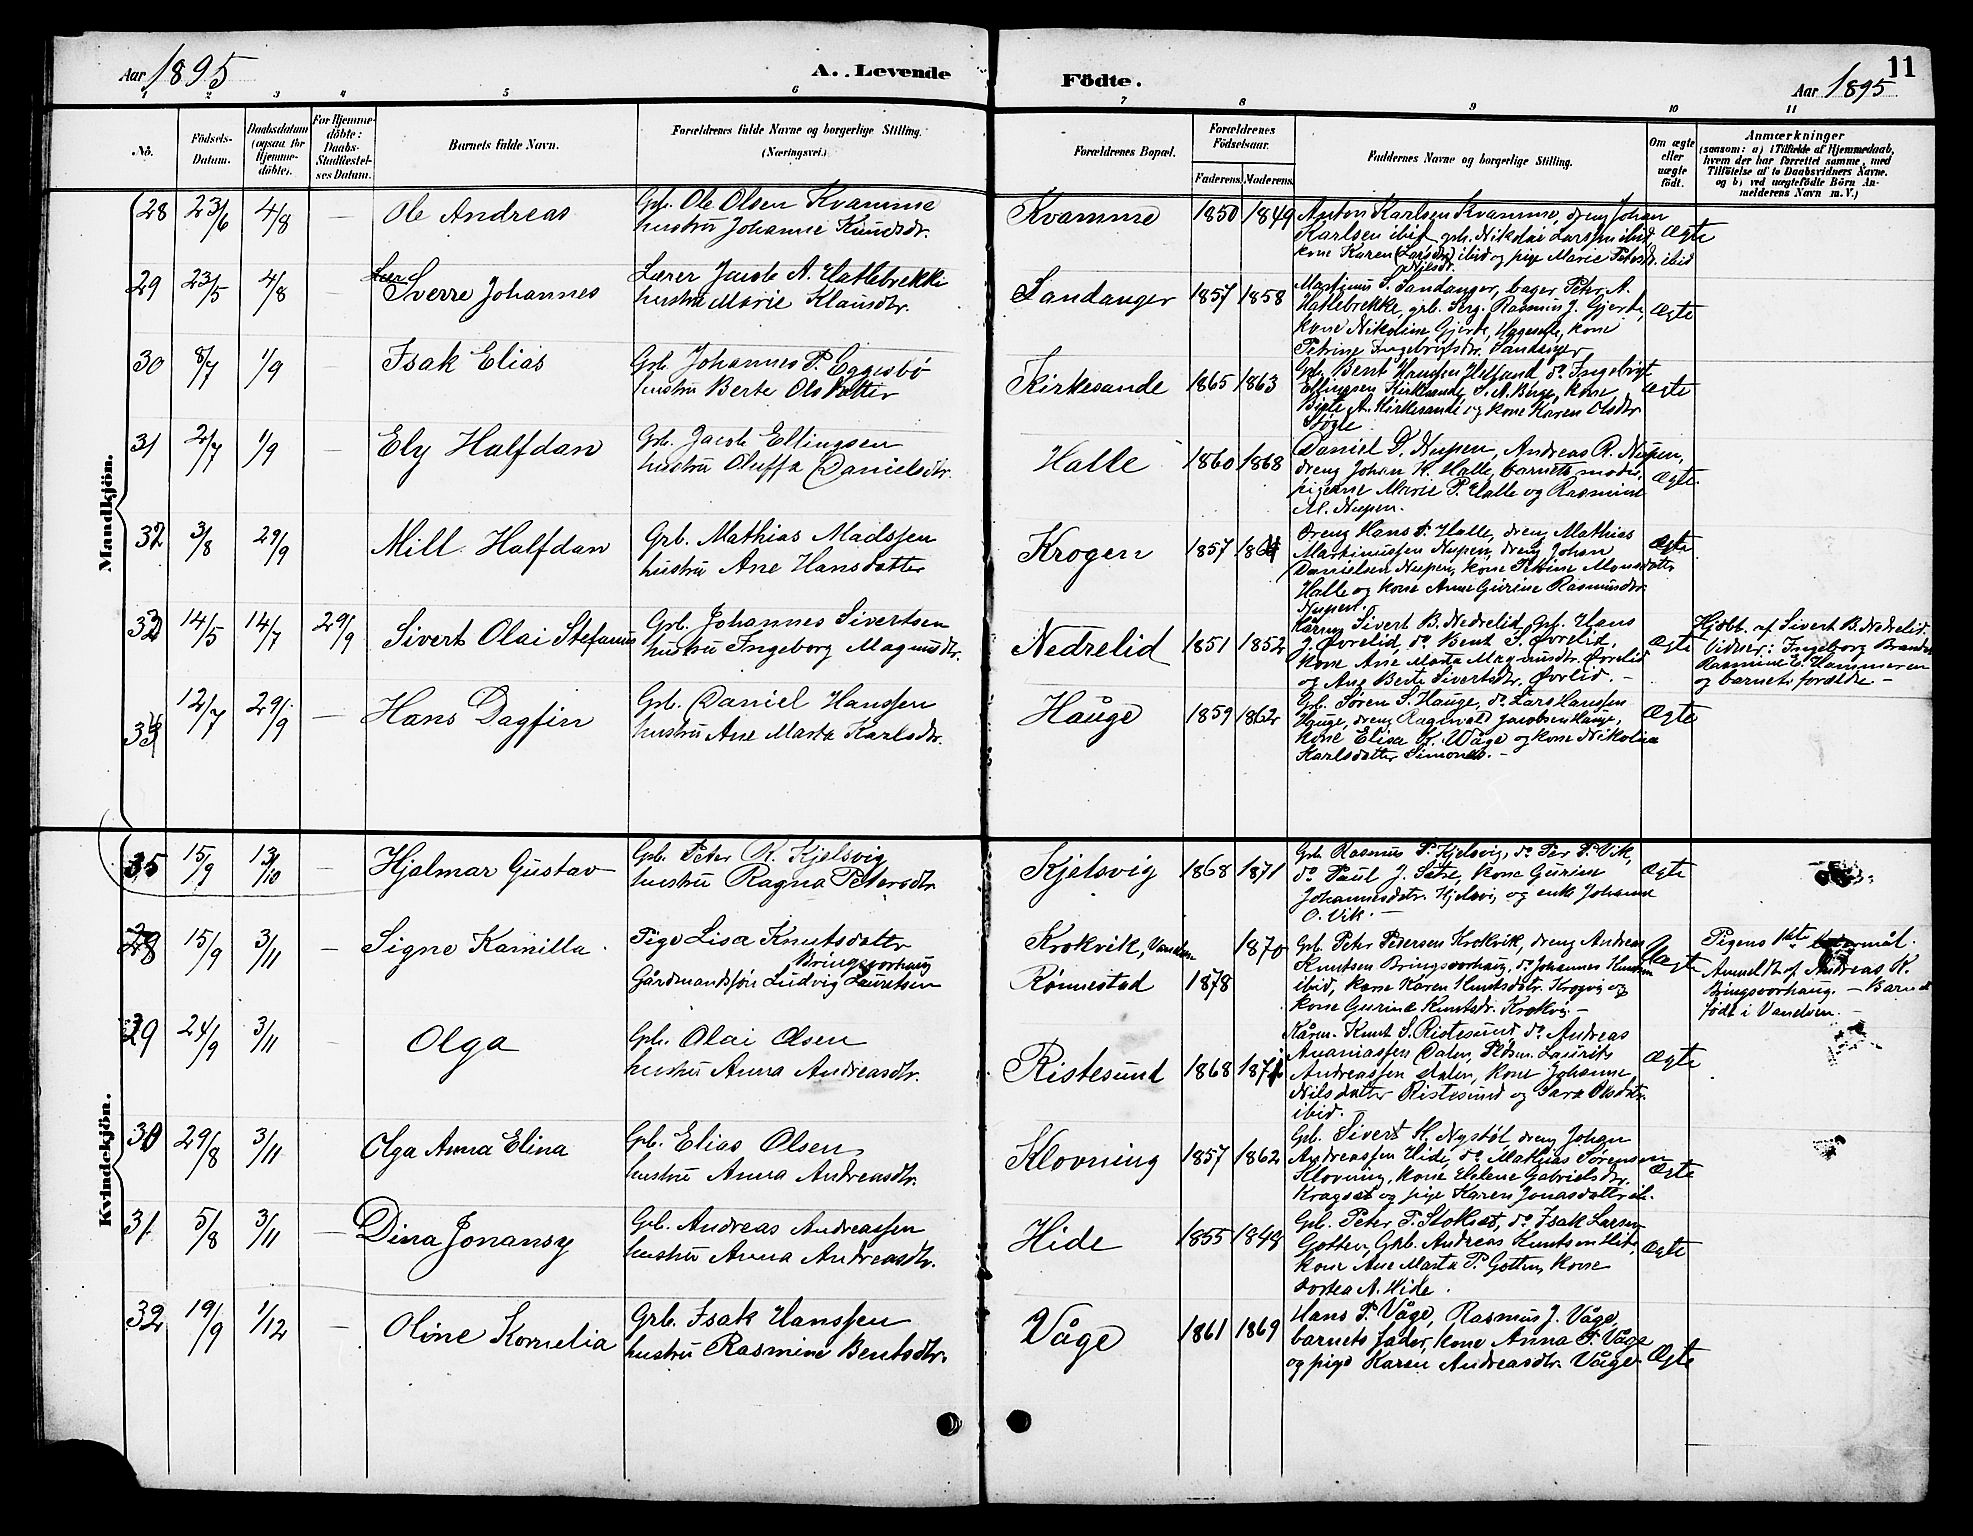 Aar 1895
A. Levende
Födte.
11
Aar 1895
1 2 3 4 5 6 7 8 9 10 11
No.
Födsels-Datum.
Daabsdatum (ogsaa for Hjemmedöbte).
For Hjemmedöbte: Daabs-Stadfæstelses Datum.
Barnets fulde Navn.
Forældrenes fulde Navne og borgerlige Stilling. (Næringsvei.)
Forældrenes Bopæl.
Forældrenes Födselsaar.
Faderens. Moderens.
Faddernes Navne og borgerlige Stilling.
Om ægte eller uægte födt.
Anmærkninger
(saasom: a) i Tilfælde af Hjemmedaab, hvem der har forrettet samme, med Tilföielse af to Daabsvidners Navne. og b) ved uægtefödte Börn Anmelderens Navn m. V.)
Mandkjön.
28 23/6 4/8 — Ole Andreas
Grb. Ole Olsen Kvamme
hustru Johanne Knudsdr.
Kvamme 1850 1849
Anton Karlsen Kvamme, dreng Johan
Karlsen ibid, grb. Nikolai Larssen ibid,
kone Karen ibid og pige Marie Petersdr. ibid
Ægte
29 23/5 4/8 — Sverre Johannes
Lærer Jacob A. Hatlebrekke
hustru Marie Klausdtr.
Sandanger 1857 1858
Martinus S. Sandanger, bager Peter A.
Hatlebrekke, grb. Serg. Rasmus J. Gjerde,
kone Nikoline Gjerde, Hagesæt, kone
Petrine Ingebrigtsdr. Sandanger
Ægte
30 8/7 1/9 — Isak Elias
Grb. Johannes P. Eggesbö
hustru Berte Olsdatter
Kirkesande 1865 1863
Grb. Bent Knudsen, do Ingebrigt
Ellingsen Kirkesande, S. A. Berge, kone
Birte A. Kirkesande og kone Karen Olsdtr.
Ægte
31 2/7 1/9 Ely Halfdan
Grb. Jacob Ellingsen
hustru Oluffa Danielsdtr.
Halle 1860 1868
Daniel D. Nupen, Andreas R. Nupen,
dreng Johan H. Halle, barnets moder,
pigerne Marie P. Halle og Rasmine
M. Nupen.
Ægte.
32 3/8 29/9 Mill Halfdan
Grb. Mathias Madssen
hustru Ane Hansdatter
Krogen 1857 1864
Dreng Hans P. Halle, dreng Mathias
Martinussen Nupen, dreng Johan
Danielsen Nupen, kone Petrine Monsdatter
Halle og kone Anne Gurine Rasmusdtr.
Nupen.
Ægte
33 14/5 14/7 29/9 Sivert Olai Stefanus
Grb. Johannes Sivertsen
hustru Ingeborg Magnusdtr.
Nedrelid 1851 1852
Kårm. Sivert B. Nedrelid, Grb. Hans
J. Øvrelid, do Bent S. Øvrelid,
kone Ane Marta Magnusdtr. Øvrelid
og Ane Berte Sivertsdtr. Øvrelid. —
Ægte
Hjdbt. af Sivert B. Nedrelid.
Vidner: Ingeborg Brandal
Rasmine E. Hammeren
og barnets forældre —
34 12/7 29/9 — Hans Dagfin
Grb. Daniel Hanssen
hustru Ane Marta Karlsdtr.
Hauge 1859 1862
Grb. Søren S. Hauge, do Lars Hanssen
Hauge, dreng Ragnvald Jacobsen Hauge,
kone Elisa K. Våge og kone Nikolina
Karlsdatter Simones. —
Ægte
35 15/9 13/10 Hjalmar Gustav
Grb. Peter R. Kjelsvig
hustru Ragna Petersdtr.
Kjelsvig 1868 1871
Grb. Rasmus P. Kjelsvig, do Per P. Vik,
do Paul J. Sætre, kone Gurine
Johannesdatr. Kjelsvig og enke Johanne
O. Vik. —
Ægte
Kvindekjön.
28 15/9 3/11 — Signe Kamilla.
Pige Lisa Knutsdatter
Bringsvorhaug
Gårdmandssön Ludvig Lauritsen
Krokvik, Vanelven 1870
Rømestad 1878
Grb. Peter Pedersen Krokvik, dreng Andreas
Knutsen Bringsvorhaug, do Johannes Knutsen
ibid, kone Karen Knutsdatr. Krogvig og
kone Gurine Knutsdr. Krokvig —
Uægte
Pigens 1ste leiermål.
Anmeldt af Andreas K.
Bringsvorhaug. — Barnet
født i Vanelven. —
29 24/9 3/11 Olga
Grb. Olai Olsen
hustru Anna Andreasdtr.
Ristesund 1868 1871
Kårm. Knut S. Ristesund, do Andreas
Ananiassen Dalen, Laurits
Andreassen Dalen, kone Johanne
Nilsdatter Ristesund og Sara Olsdatr.
ibid. —
Ægte
30 29/8 3/11 Olga Anna Elina
Grb. Elias Olsen
hustru Anna Andreasdtr.
Klovning 1857 1862
Grb. Sivert H. Nystöl, dreng Johan
Andreassen Hide, do Mathias Sørensen
Klovning, kone Helene Gabrielsdtr.
Kragset og pige Karen Jonasdatter ib.
Ægte
31 5/8 3/11 — Dina Jonansy
Grb. Andreas Andreassen
hustru Anna Andreasdtr.
Hide 1855 1848
Grb. Peter P. Stokset, do Isak Larsen
Gotten, Grb. Andreas Knutsen Hide,
kone Ane Marta P. Gotten, kone
Dortea A. Hide.
Ægte
32 19/9 1/12 — Oline Kornelia
Grb. Isak Hanssen
hustru Rasmine Bentsdtr.
Våge 1861 1869
Hans P. Våge, Rasmus J. Våge,
barnets fader, kone Anna P. Våge
og pige Karen Andreasdtr. Våge.
Ægte